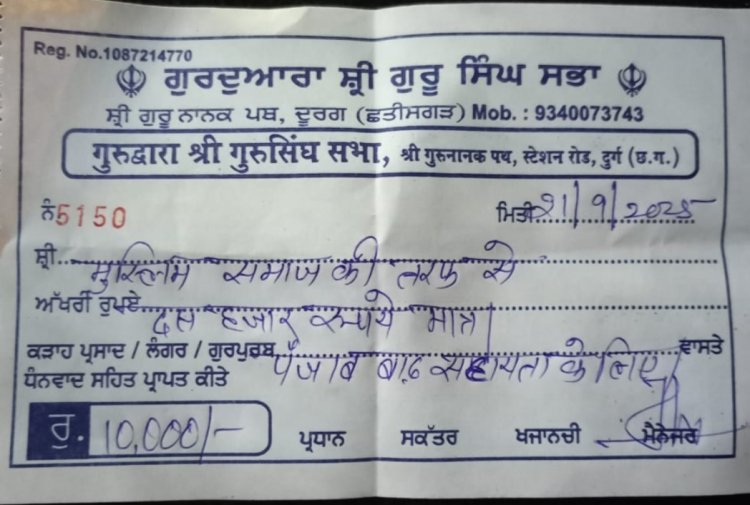 Reg. No.1087214770
ਗੁਰਦੁਆਰਾ ਸ਼੍ਰੀ ਗੁਰੂ ਸਿੰਘ ਸਭਾ
ਸ਼੍ਰੀ ਗੁਰੂ ਨਾਨਕ ਪਥ, ਦੂਰਗ (ਛਤੀਸਗੜ) Mob. : 9340073743
गुरुद्वारा श्री गुरुसिंघ सभा, श्री गुरुनानक पथ, स्टेशन रोड, दुर्ग (छ.ग.)
ਨੰ 5150 ਮਿਤੀ 21/9/2025
ਸ਼੍ਰੀ मुस्लिम समाज की तरफ से
ਅੱਖਰੀਂ ਰੁਪਏ दस हजार रूपये मात्र
ਕੜਾਹ ਪ੍ਰਸਾਦ / ਲੰਗਰ / ਗੁਰਪੁਰਬ पंजाब बाढ़ सहायता के लिए ਵਾਸਤੇ
ਧੰਨਵਾਦ ਸਹਿਤ ਪ੍ਰਾਪਤ ਕੀਤੇ
ਰੁ. 10,000/- ਪ੍ਰਧਾਨ ਸਕੱਤਰ ਖਜਾਨਚੀ ਮੈਨੇਜਰ